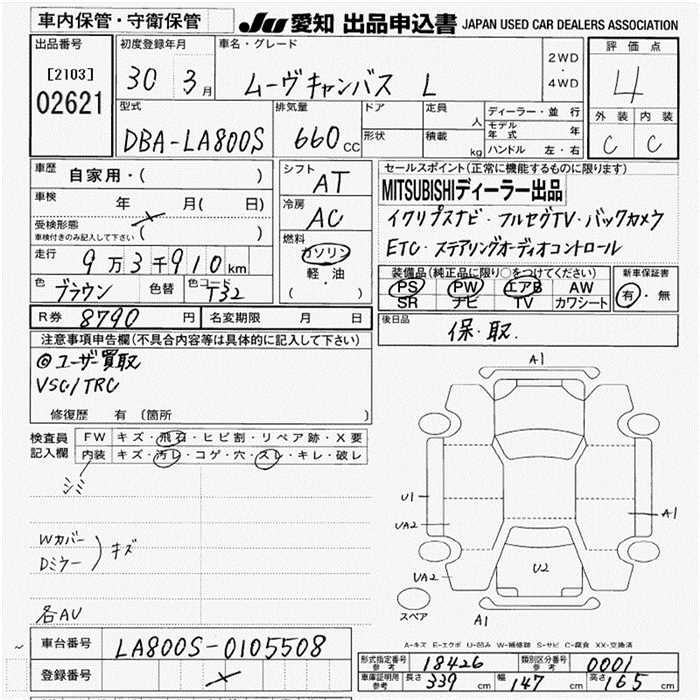 車内保管・守衛保管
JU 愛知 出品申込書 JAPAN USED CAR DEALERS ASSOCIATION
出品番号
[2103]
02621
初度登録年月
30 3月
車名・グレード
ムーヴキャンバス L
2WD
・
4WD
評価点
4
外装 内装
C C
型式
DBA-LA800S
排気量
660 CC
ドア
形状
定員 人
積載 kg
ディーラー・並行
モデル年式 年
ハンドル 左・右
車歴 自家用・( )
車検 年 月( 日)
受検形態
車検付きのみ記入して下さい ( )
走行 9万3千910km
色 ブラウン 色替 色コード T32
シフト AT
冷房 AC
燃料 ガソリン
軽・油
( )
セールスポイント(正常に機能するものに限ります)
MITSUBISHIディーラー出品
イクリプスナビ・フルセグTV・バックカメラ
ETC・ステアリングオーディオコントロール
装備品(純正品に限り○をつけてください)
PS PW エアB AW
SR ナビ TV カワシート
新車保証書
有・無
R券 8790 円 名変期限 月 日
後日品
保・取
注意事項申告欄(不具合内容等は具体的に記入して下さい)
◎ユーザー買取
VSC/TRC
修復歴 有(箇所 )
検査員記入欄
FW キズ・飛石・ヒビ割・リペア跡・X要
内装 キズ・汚レ・コゲ・穴・スレ・キレ・破レ
シミ
Wカバー
Dミラー
キズ
各AU
A1
U1
UA2
A1
UA2
U2
スペア
A1
A-キズ E-エクボ U-凹み W-補修跡 S-サビ C-腐食 XX-交換済
車台番号 LA800S-0105508
登録番号
形式指定番号参考 18426 類別区分番号参考 0001
車庫証明用参考 長さ 339 cm 幅 147 cm 高さ 165 cm